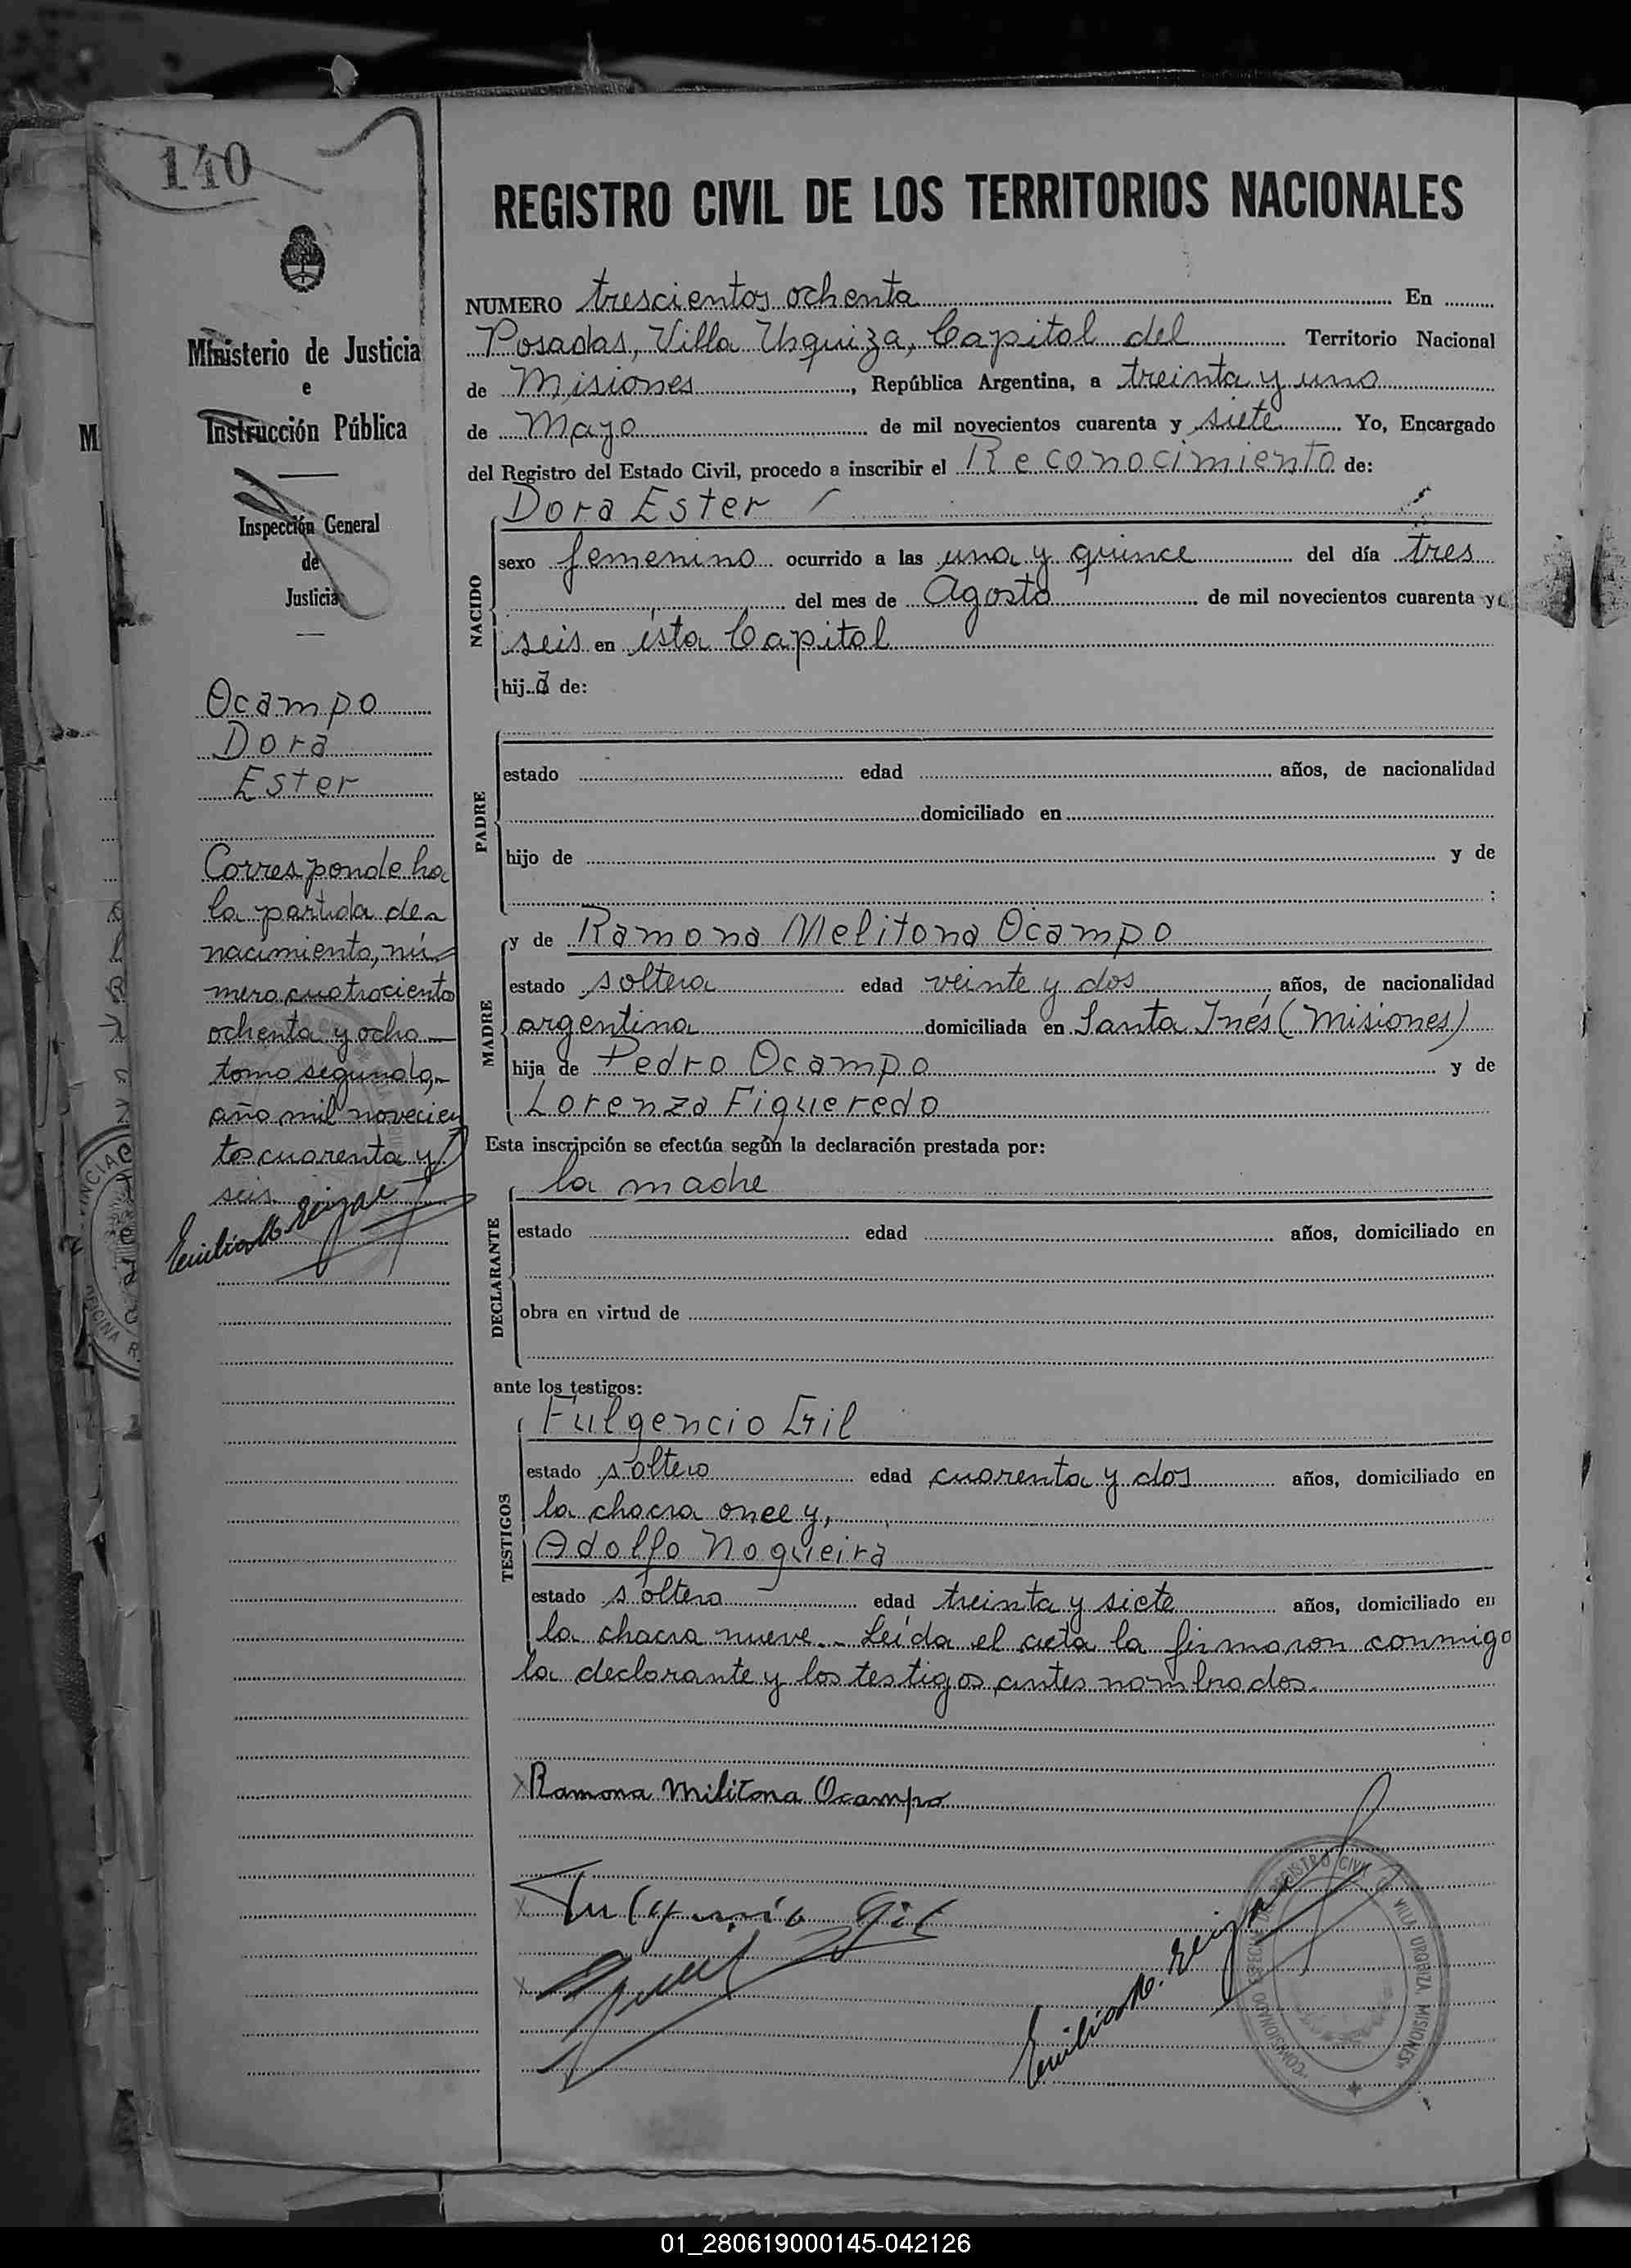 140
Ministerio de Justicia
e
Instrucción Pública
Inspección General
de
Justicia
Ocampo
Dora
Ester
Corresponde ha
la partida de
nacimiento, nú-
mero cuatrociento
ochenta y ocho
tomo segundo,
año mil novecien
tos cuarenta y
seis
REGISTRO CIVIL DE LOS TERRITORIOS NACIONALES
NUMERO trescientos ochenta En
Posadas, Villa Urquiza, Capital del Territorio Nacional
de Misiones, República Argentina, a treinta y uno
de Mayo de mil novecientos cuarenta y siete Yo, Encargado
del Registro del Estado Civil, procedo a inscribir el Reconocimiento de:
Dora Ester
NACIDO
sexo femenino ocurrido a las una y quince del día tres
del mes de Agosto de mil novecientos cuarenta y
seis en ésta Capital
hija de:
PADRE
estado edad años, de nacionalidad
domiciliado en
hijo de y de
;
MADRE
y de Ramona Melitona Ocampo
estado soltera edad veinte y dos años, de nacionalidad
argentina domiciliada en Santa Inés (Misiones)
hija de Pedro Ocampo y de
Lorenza Figueredo
Esta inscripción se efectúa según la declaración prestada por:
DECLARANTE
la madre
estado edad años, domiciliado en
obra en virtud de
ante los testigos:
TESTIGOS
Fulgencio Gil
estado soltero edad cuarenta y dos años, domiciliado en
la chacra once y,
Adolfo Nogueira
estado soltero edad treinta y siete años, domiciliado en
la chacra nueve.- Leída el acta la firmaron conmigo
la declarante y los testigos antes nombrados.
Ramona Militona Ocampo
Fulgencio Gil
REGISTRO CIVIL VILLA URQUIZA MISIONES
01_280619000145-042126